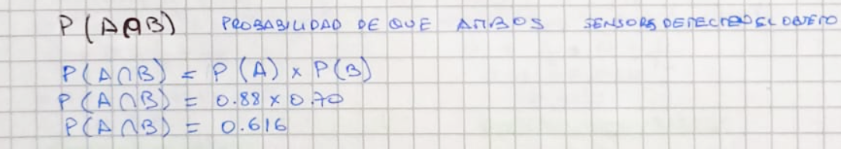 P(A∩B) PROBABILIDAD DE QUE AMBOS SENSORS DETECTEO EL OBJETO
P(A∩B) = P(A) x P(B)
P(A∩B) = 0.88 x 0.70
P(A∩B) = 0.616